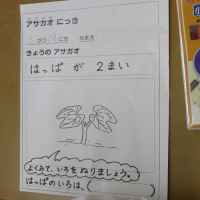 アサガオ にっき
がつ にち なまえ
きょうの アサガオ
はっぱ が 2まい
よくみて、いろをぬりましょう。
はっぱのいろは、(